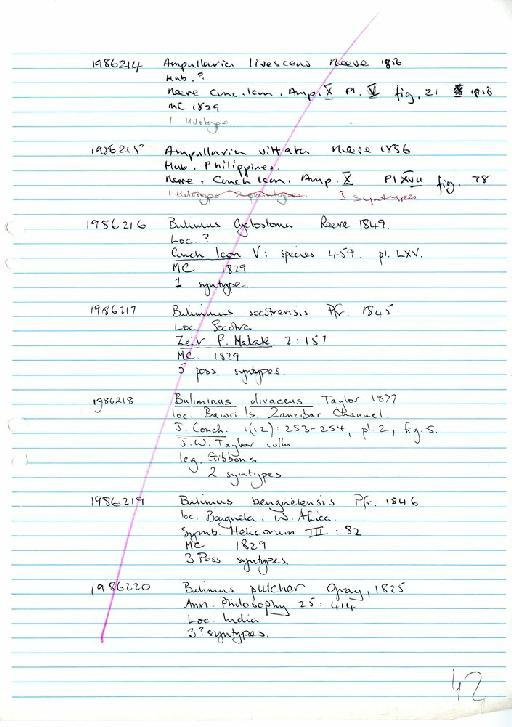 1986214 Ampullaria livescens Reeve 1856
Hab. ?
Reeve Conc. Icon. Amp. X Pl. V fig. 21
MC 1829
1 Holotype
1986215 Ampullaria vittata Reeve 1856
Hab. Philippines.
Reeve. Conch Icon. Amp. X Pl XVII fig. 78
3 syntypes
1986216 Bulimus Cyclostoma Reeve 1849.
Loc. ?
Conch Icon V: species 459. pl. LXV.
MC 1829
1 syntype.
1986217 Buliminus socotrensis Pfr. 1845
Loc. Socotra
Zeit. f. Malak 2: 157
MC. 1829
5 poss syntypes.
1986218 Buliminus divaceus Taylor 1877
loc. Bawri Is. Zanzibar Channel
J. Conch. 1(12): 253-254, pl. 2, fig. 5.
J.W. Taylor colln
leg. Gibbons
2 syntypes
1986219 Bulimus benguelensis Pfr. 1846
loc. Benguela. W. Africa.
Symb. Helicorum III: 82
MC 1829
3 Poss syntypes.
1986220 Bulimus pulcher Gray, 1825
Ann. Philosophy 25: 414
Loc. India
3? syntypes.
42